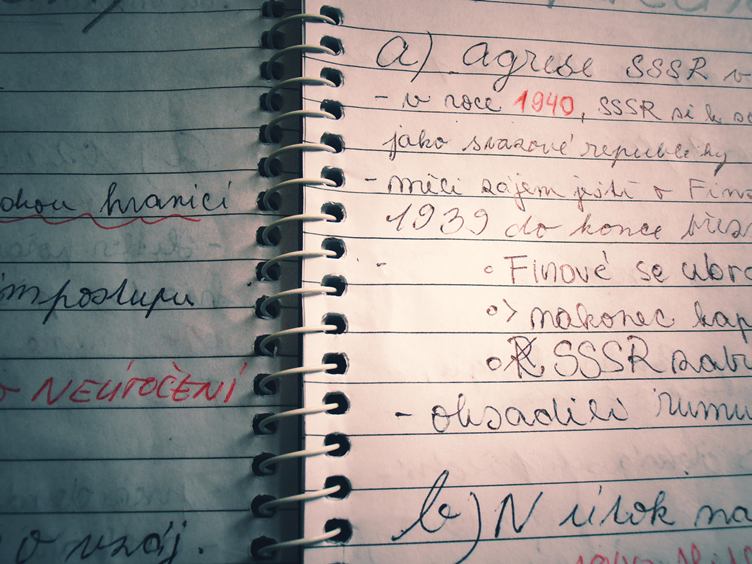 hranicí
postupu
NEÚTOČENÍ
o vzáj.
a) agrese SSSR v
- v roce 1940, SSSR si k
jako svazové republiky
- měli zájem ještě o
1939 do konce
Finové se
nakonec
SSSR
- obsadili rumu
b) N útok na